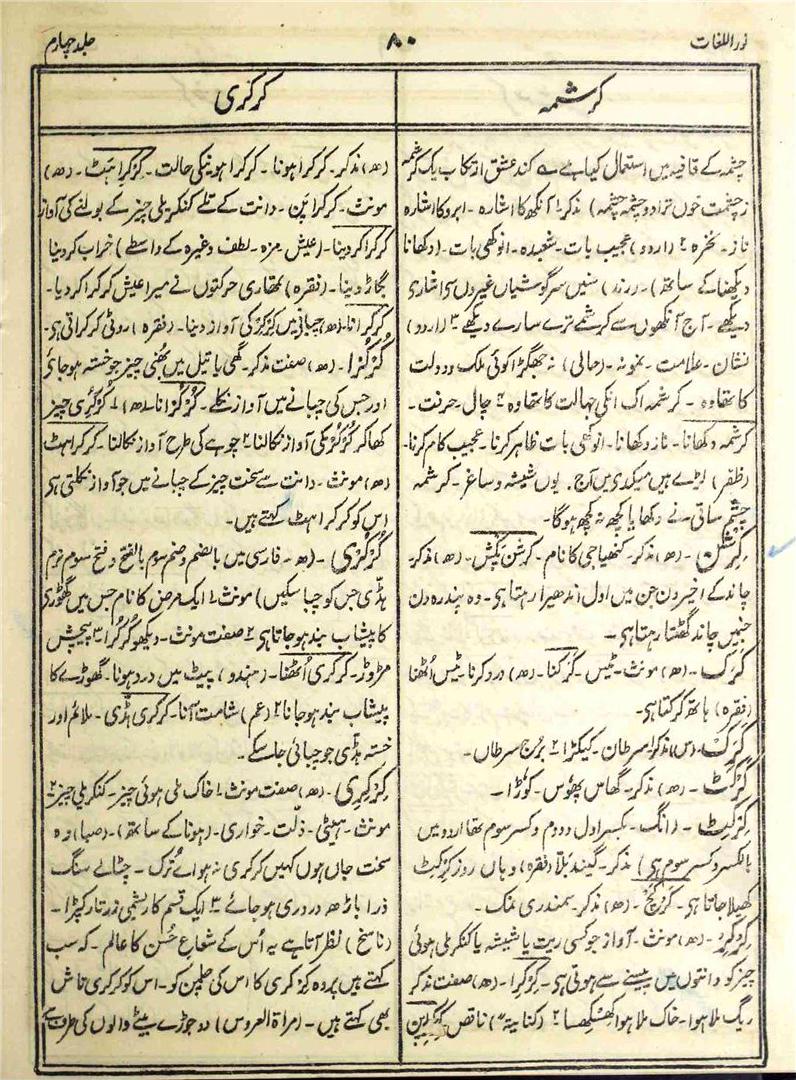 نور اللغات
۸۰
جلد چہارم
کرشمہ
کرکری
چشمہ کے قافیہ میں استعمال کیا ہے ؎ کند عشق ارتکاب یک کرشمہ
ز چشمت خوں ترا دو چشمہ چشمہ) مذکر ۱ آنکھ کا اشارہ ۔ ابرو کا اشارہ
ناز ۔ نخرہ ۲ (اردو) عجیب بات ۔ شعبدہ ۔ انوکھی بات ۔ (دکھانا
دیکھنا کے ساتھ) ۔ (رند) سنیں سرگوشیاں غیروں سی اشاری
دیکھے ۔ آج آنکھوں سے کرشمے ترے سارے دیکھے ۳ (اردو)
نشان ۔ علامت ۔ نمونہ ۔ (حالی) نہ جھگڑا کوئی ملک و دولت
کا تھا وہ ۔ کرشمہ اک انکی جہالت کا تھا وہ ۴ چال ۔ حرفت ۔
کرشمہ دکھانا ۔ ناز دکھانا ۔ انوکھی بات ظاہر کرنا ۔ عجیب کام کرنا ۔
(ظفر) لڑے ہیں میکدی میں آج ۔ یوں شیشہ و ساغر ۔ کرشمہ
چشم ساقی نے دکھایا کچھ نہ کچھ ہوگا ۔
کرشن ۔ (ھ) مذکر ۔ کنھیا جی کا نام ۔ کرشن پکش ۔ (ھ) مذکر ۔
چاند کے اخیر دن جن میں اول اندھیرا رہتا ہی ۔ وہ پندرہ دن
جنمیں چاند گھٹتا رہتا ہی ۔
کرک ۔ (ھ) مونث ۔ ٹیس ۔ کرکنا ۔ (ھ) درد کرنا ۔ ٹیس اٹھنا
(فقرہ) ہاتھ کرکتا ہی ۔
کرک ۔ (س) مذکر ۱ سرطان ۔ کیکڑا ۲ برج سرطان ۔
کرکٹ ۔ (ھ) مذکر ۔ گھاس پھوس ۔ کوڑا ۔
کرکیٹ ۔ (انگ ۔ بکسر اول و دوم و کسر سوم تھا اردو میں
بالکسر و کسر سوم ہی) مذکر ۔ گیند بلا (فقرہ) وہاں روز کرکیٹ
کھیلا جاتا ہی ۔ کرکچ ۔ (ھ) مذکر ۔ سمندری نمک ۔
کرکر ۔ (ھ) مونث ۔ آواز جو کسی ریت یا شیشہ یا کنکر ملی ہوئی
چیز کو دانتوں میں پیسنے سے ہوتی ہی ۔ کرکرا ۔ (ھ) صفت مذکر
ریگ ملا ہوا ۔ خاک ملا ہوا کھسکھسا ۲ (کنایۃً) ناقص کرکرا پن
(ھ) مذکر ۔ کرکرا ہونا ۔ کرکرا ہونیکی حالت ۔ کرکراہٹ ۔ (ھ)
مونث ۔ کرکرا پن ۔ دانت کے تلے کنکریلی چیز کے بولنے کی آواز
کرکرا کر دینا ۔ (عیش ۔ مزہ ۔ لطف وغیرہ کے واسطے) خراب کر دینا
بگاڑ دینا ۔ (فقرہ) تمھاری حرکتوں نے میرا عیش کرکرا کر دیا ۔
کرکرانا ۔ (ھ) چبانے میں کرکر کی آواز دینا ۔ (فقرہ) روٹی کرکراتی ہی ۔
کرکرا ۔ (ھ) صفت مذکر ۔ گھی یا تیل میں بھنی چیز جو خستہ ہو جائے
اور جس کی چبانے میں آواز نکلے ۔ کرکرانا ۔ (ھ) ۱ کرکری چیز
کھا کر کرکر کی آواز نکالنا ۲ چوہے کی طرح آواز نکالنا ۔ کرکراہٹ
(ھ) مونث ۔ دانت سے سخت چیز کے چبانے میں جو آواز نکلتی ہی
اس کو کرکراہٹ کہتے ہیں ۔
کرکری ۔ (ھ ۔ فارسی میں بالضم وضم سوم بالفتح و فتح سوم نرم
ہڈی جس کو چبا سکیں) مونث ۱ ایک مرض کا نام جس میں گھوڑی
کا پیشاب بند ہو جاتا ہی ۲ صفت مونث ۔ دیکھو کرکرا ۳ پیچش
مڑوڑ ۔ کرکری اٹھنا ۔ (ہندو) پیٹ میں درد ہونا ۔ گھوڑے کا
پیشاب بند ہو جانا ۲ (عم) شامت آنا ۔ کرکری ہڈی ۔ ملائم اور
خستہ ہڈی جو چبائی جا سکے ۔
کرکری ۔ (ھ) صفت مونث ۱ خاک ملی ہوئی چیز ۔ کنکر ملی چیز ۲
مونث ۔ ہیٹی ۔ ذلت ۔ خواری ۔ (ہونا کے ساتھ) ۔ (صبا) وہ
سخت جاں ہوں کہیں کرکری نہ ہو اے ترک ۔ چٹا لے سنگ
ذرا باڑھ دردری ہو جائے ۳ ایک قسم کا ریشمی زرتار کپڑا ۔
(ناسخ) نظر آتا ہے یہ اُس کے شعاع حسن کا عالم ۔ کہ سب
کہتے ہیں پردہ کرکری کا اس کی چلمن کو ۔ اس کو کرکری تاش
بھی کہتے ہیں ۔ (مراۃ العروس) دو جوڑے بیٹے والوں کی طرف سے